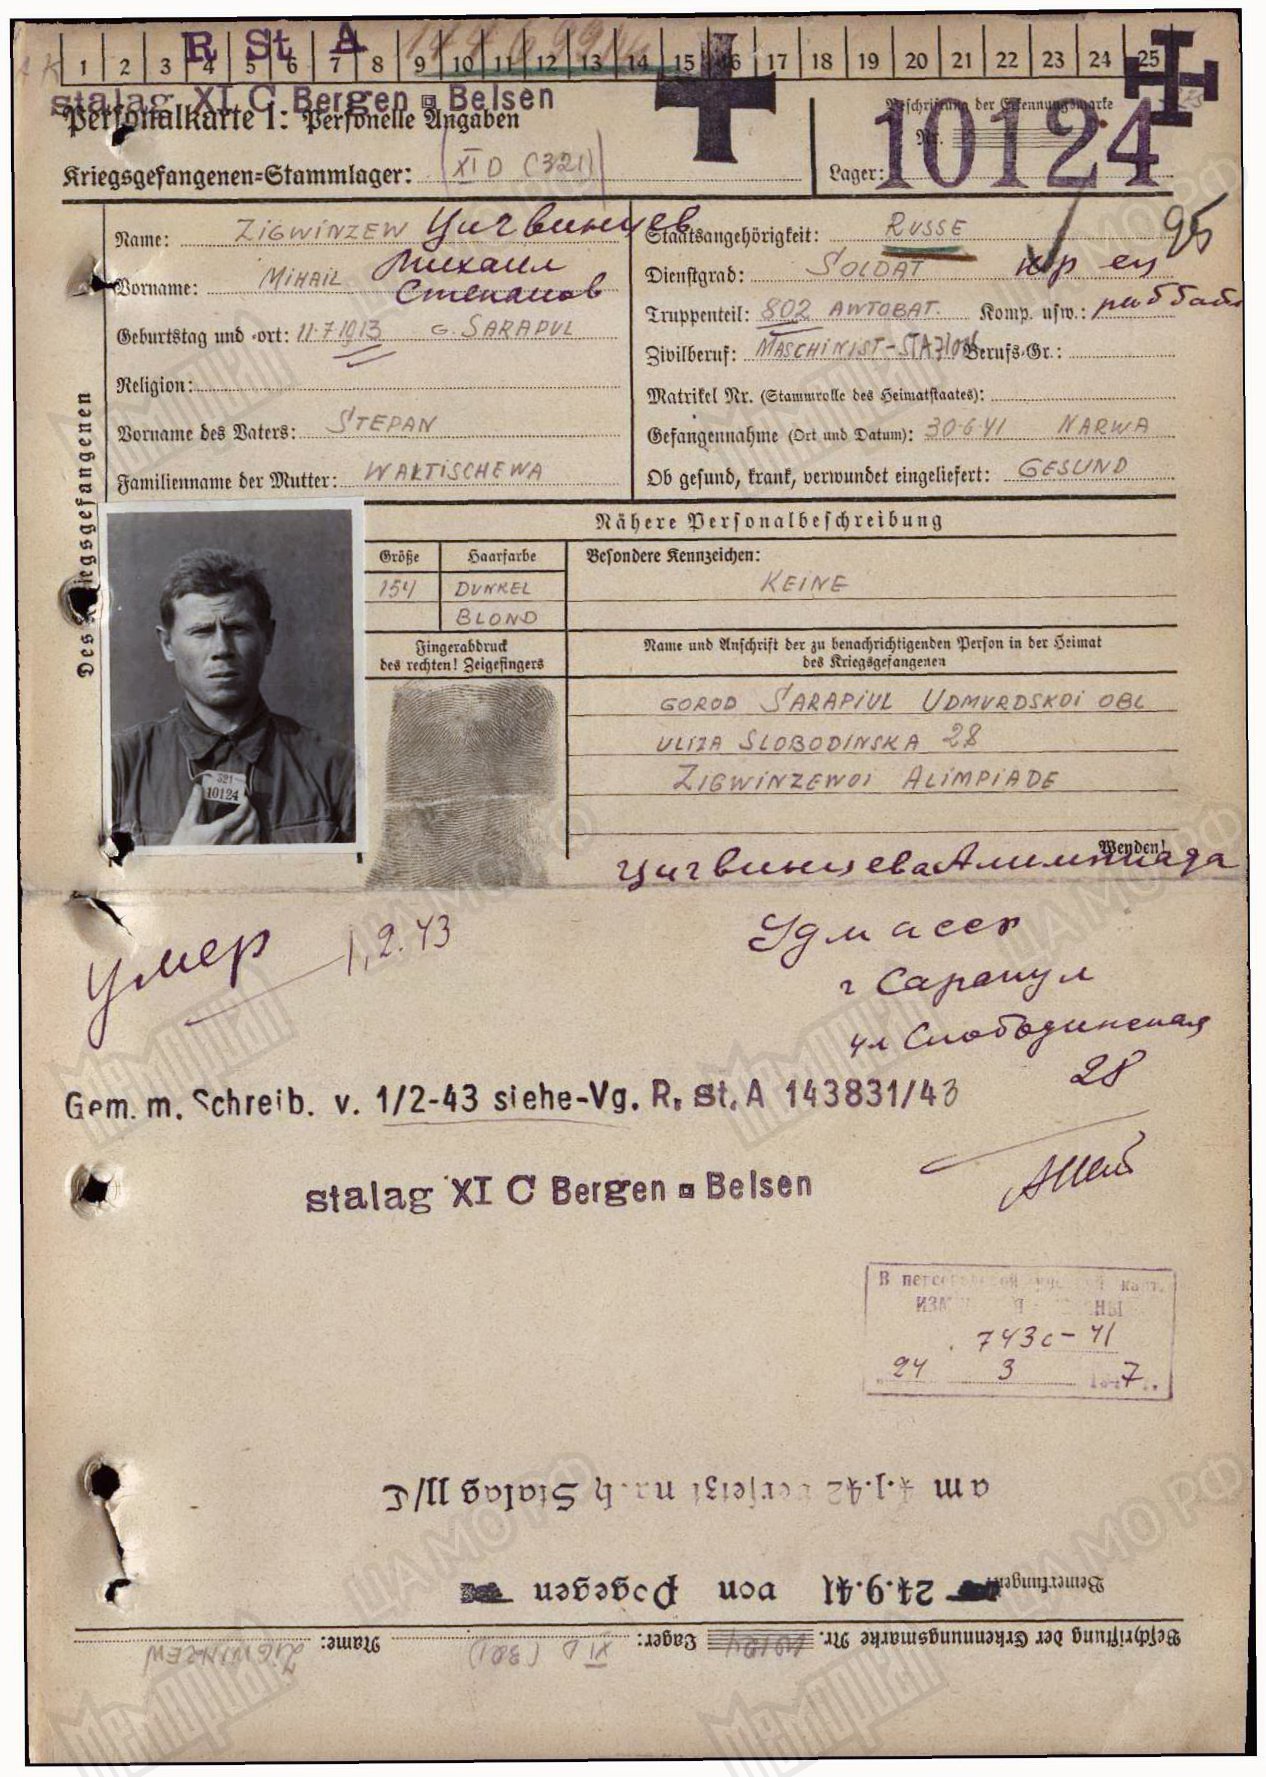 R St A
1 2 3 4 5 6 7 8 9 10 11 12 13 14 15 16 17 18 19 20 21 22 23 24 25
stalag XI C Bergen Belsen
Personalkarte I: Personelle Angaben
Beschriftung der Erkennungsmarke
Nr. 10124
Kriegsgefangenen-Stammlager: XI D (321)
Lager:
Des Kriegsgefangenen
Name: ZIGWINZEW Цигвинцев
Vorname: MIHAIL Михаил
Степанов
Geburtstag und -ort: 11.7.1913 G. SARAPUL
Religion:
Vorname des Vaters: STEPAN
Familienname der Mutter: WAKTISCHEWA
Staatsangehörigkeit: RUSSE
95
Dienstgrad: SOLDAT
Truppenteil: 802 AWTOBAT. Komp. usw.:
Zivilberuf: MASCHINIST- Berufs-Gr.:
Matrikel Nr. (Stammrolle des Heimatstaates):
Gefangennahme (Ort und Datum): 30.6.41 NARWA
Ob gesund, krank, verwundet eingeliefert: GESUND
Nähere Personalbeschreibung
Größe Haarfarbe Besondere Kennzeichen:
154 DUNKEL KEINE
BLOND
Fingerabdruck
des rechten! Zeigefingers
Name und Anschrift der zu benachrichtigenden Person in der Heimat
des Kriegsgefangenen
GOROD SARAPIUL UDMURDSKOI OBL
ULIZA SLOBODINSKA 28
ZIGWINZEWOI ALIMPIADE
321
10124
Wenden!
Цигвинцева Алимпиада
Умер 1.2.43
Удм асср
г Сарапул
ул Слободинская
28
Gem. m. Schreib. v. 1/2-43 siehe-Vg. R. St. A 143831/43
stalag XI C Bergen Belsen
743с-41
24 3 1947.
am 4.1.42 versetzt nach Stalag 11/C
Bemerkungen: 24.9.41 von Pogegen
Beschriftung der Erkennungsmarke Nr. 10124 Lager: XI D (321) Name: ZIGWINZEW
Мемориал
ЦАМО РФ